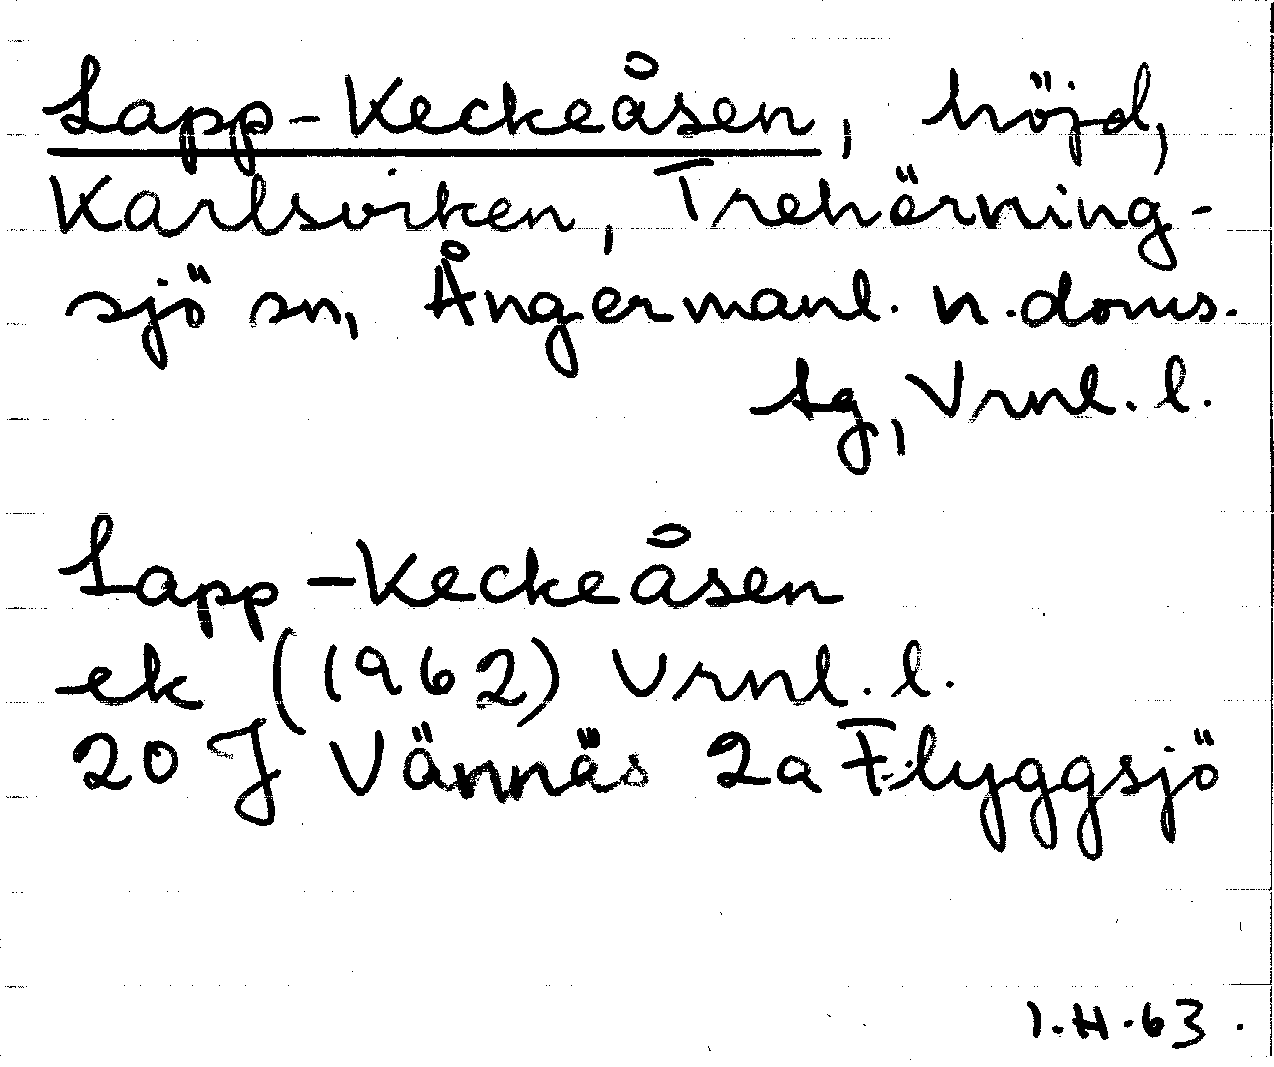 Lapp-Keckeåsen, höjd,
Karlsviken, Trehörning-
sjö sn, Ångermanl. n. doms.
sg, Vrnl. l.
Lapp-Keckeåsen
ek (1962) Vrnl. l.
20 J Vännäs 2a Flyggsjö
I.H.63.